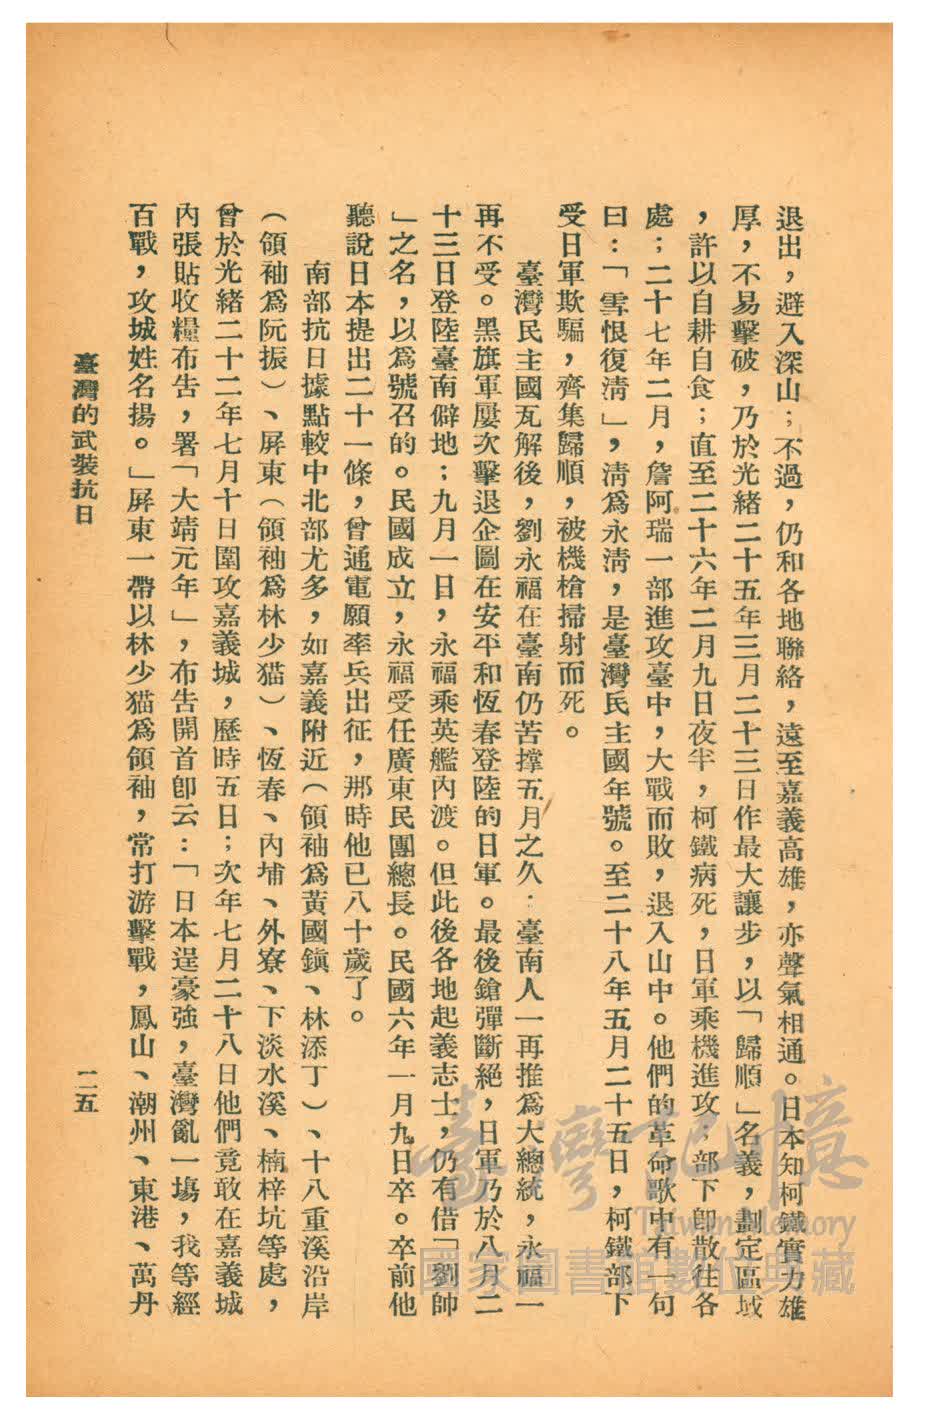 退出，避入深山；不過，仍和各地聯絡，遠至嘉義高雄，亦聲氣相通。日本知柯鐵實力雄
厚，不易擊破，乃於光緒二十五年三月二十三日作最大讓步，以「歸順」名義，劃定區域
，許以自耕自食；直至二十六年二月九日夜半，柯鐵病死，日軍乘機進攻，部下卽散往各
處；二十七年二月，詹阿瑞一部進攻臺中，大戰而敗，退入山中。他們的革命歌中有一句
曰：「雪恨復淸」，淸爲永淸，是臺灣民主國年號。至二十八年五月二十五日，柯鐵部下
受日軍欺騙，齊集歸順，被機槍掃射而死。
臺灣民主國瓦解後，劉永福在臺南仍苦撑五月之久；臺南人一再推爲大總統，永福一
再不受。黑旗軍屢次擊退企圖在安平和恆春登陸的日軍。最後鎗彈斷絕，日軍乃於八月二
十三日登陸臺南僻地；九月一日，永福乘英艦內渡。但此後各地起義志士，仍有借「劉帥
」之名，以爲號召的。民國成立，永福受任廣東民團總長。民國六年一月九日卒。卒前他
聽說日本提出二十一條，曾通電願率兵出征，那時他已八十歲了。
南部抗日據點較中北部尤多，如嘉義附近（領袖爲黃國鎭、林添丁）、十八重溪沿岸
（領袖爲阮振）、屏東（領袖爲林少猫）、恆春、內埔、外寮、下淡水溪、楠梓坑等處，
曾於光緒二十二年七月十日圍攻嘉義城，歷時五日；次年七月二十八日他們竟敢在嘉義城
內張貼收糧布告，署「大靖元年」，布告開首卽云：「日本逞豪強，臺灣亂一塲，我等經
百戰，攻城姓名揚。」屏東一帶以林少猫爲領袖，常打游擊戰，鳳山、潮州、東港、萬丹
臺灣的武裝抗日
二五
臺灣記憶
Taiwan Memory
國家圖書館數位典藏